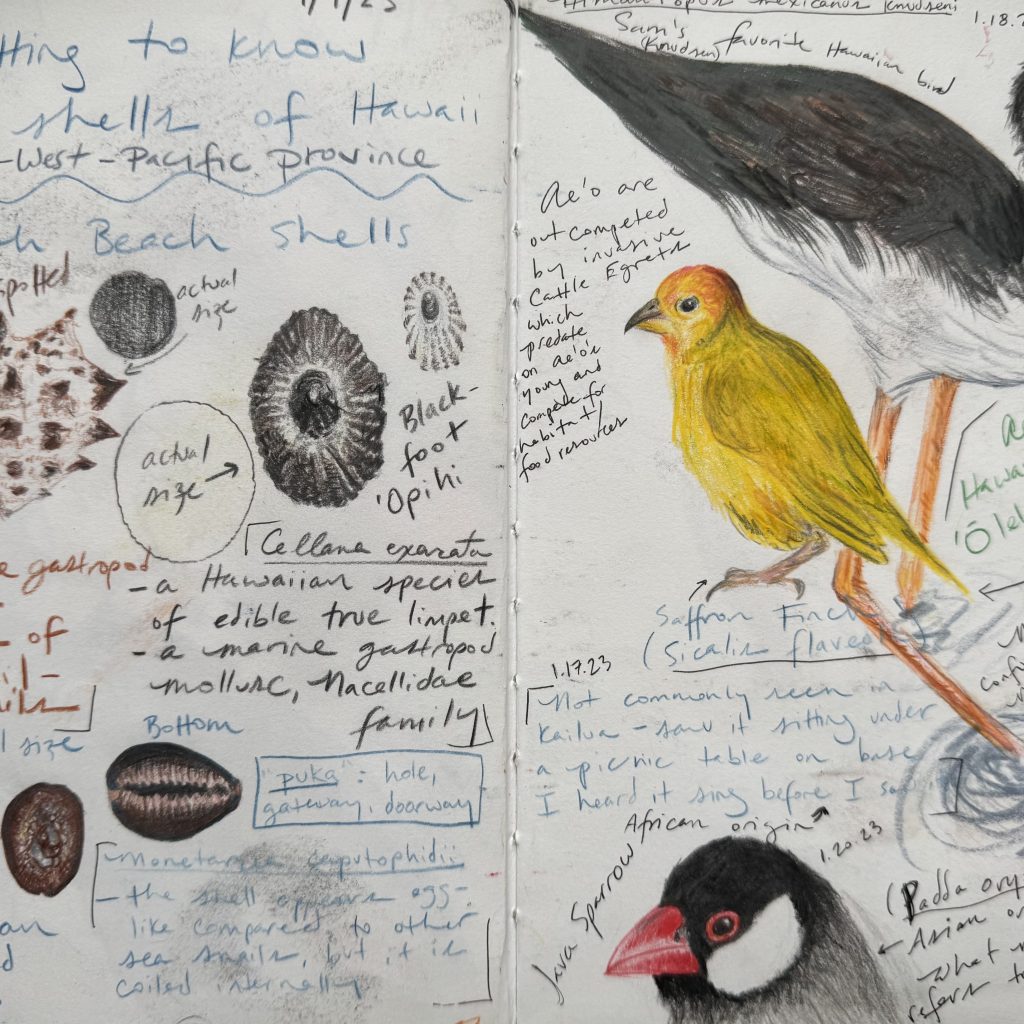 1/1/23
tting to know
shells of Hawaii
-West-Pacific province
ch Beach shells
spotted
actual
size
actual
size
Black-
foot
'Opihi
Cellana exarata
- a Hawaiian species
of edible true limpet.
- a marine gastropod
mollusc, Nacellidae
family
e gastropod
- of
il-
ails
l size
Bottom
"puka": hole,
gateway, doorway
Monetaria caputophidii
- the shell appears egg-
like compared to other
sea snails, but it is
coiled internally
an
d
Himantopus mexicanus knudseni
1.18.2
Sam's favorite Hawaiian bird
(Knudsen)
Ae'o are
out competed
by invasive
Cattle Egrets
which
predate
on ae'o's
young and
compete for
habitat/
food resources
Hawai
'Ōlel
Saffron Finch
(Sicalis flaveola)
1.17.23
Not commonly seen in
Kailua - saw it sitting under
a picnic table on base
I heard it sing before I saw it
African origin
1.20.23
Java Sparrow
(Padda ory
Asian or
what
refers to